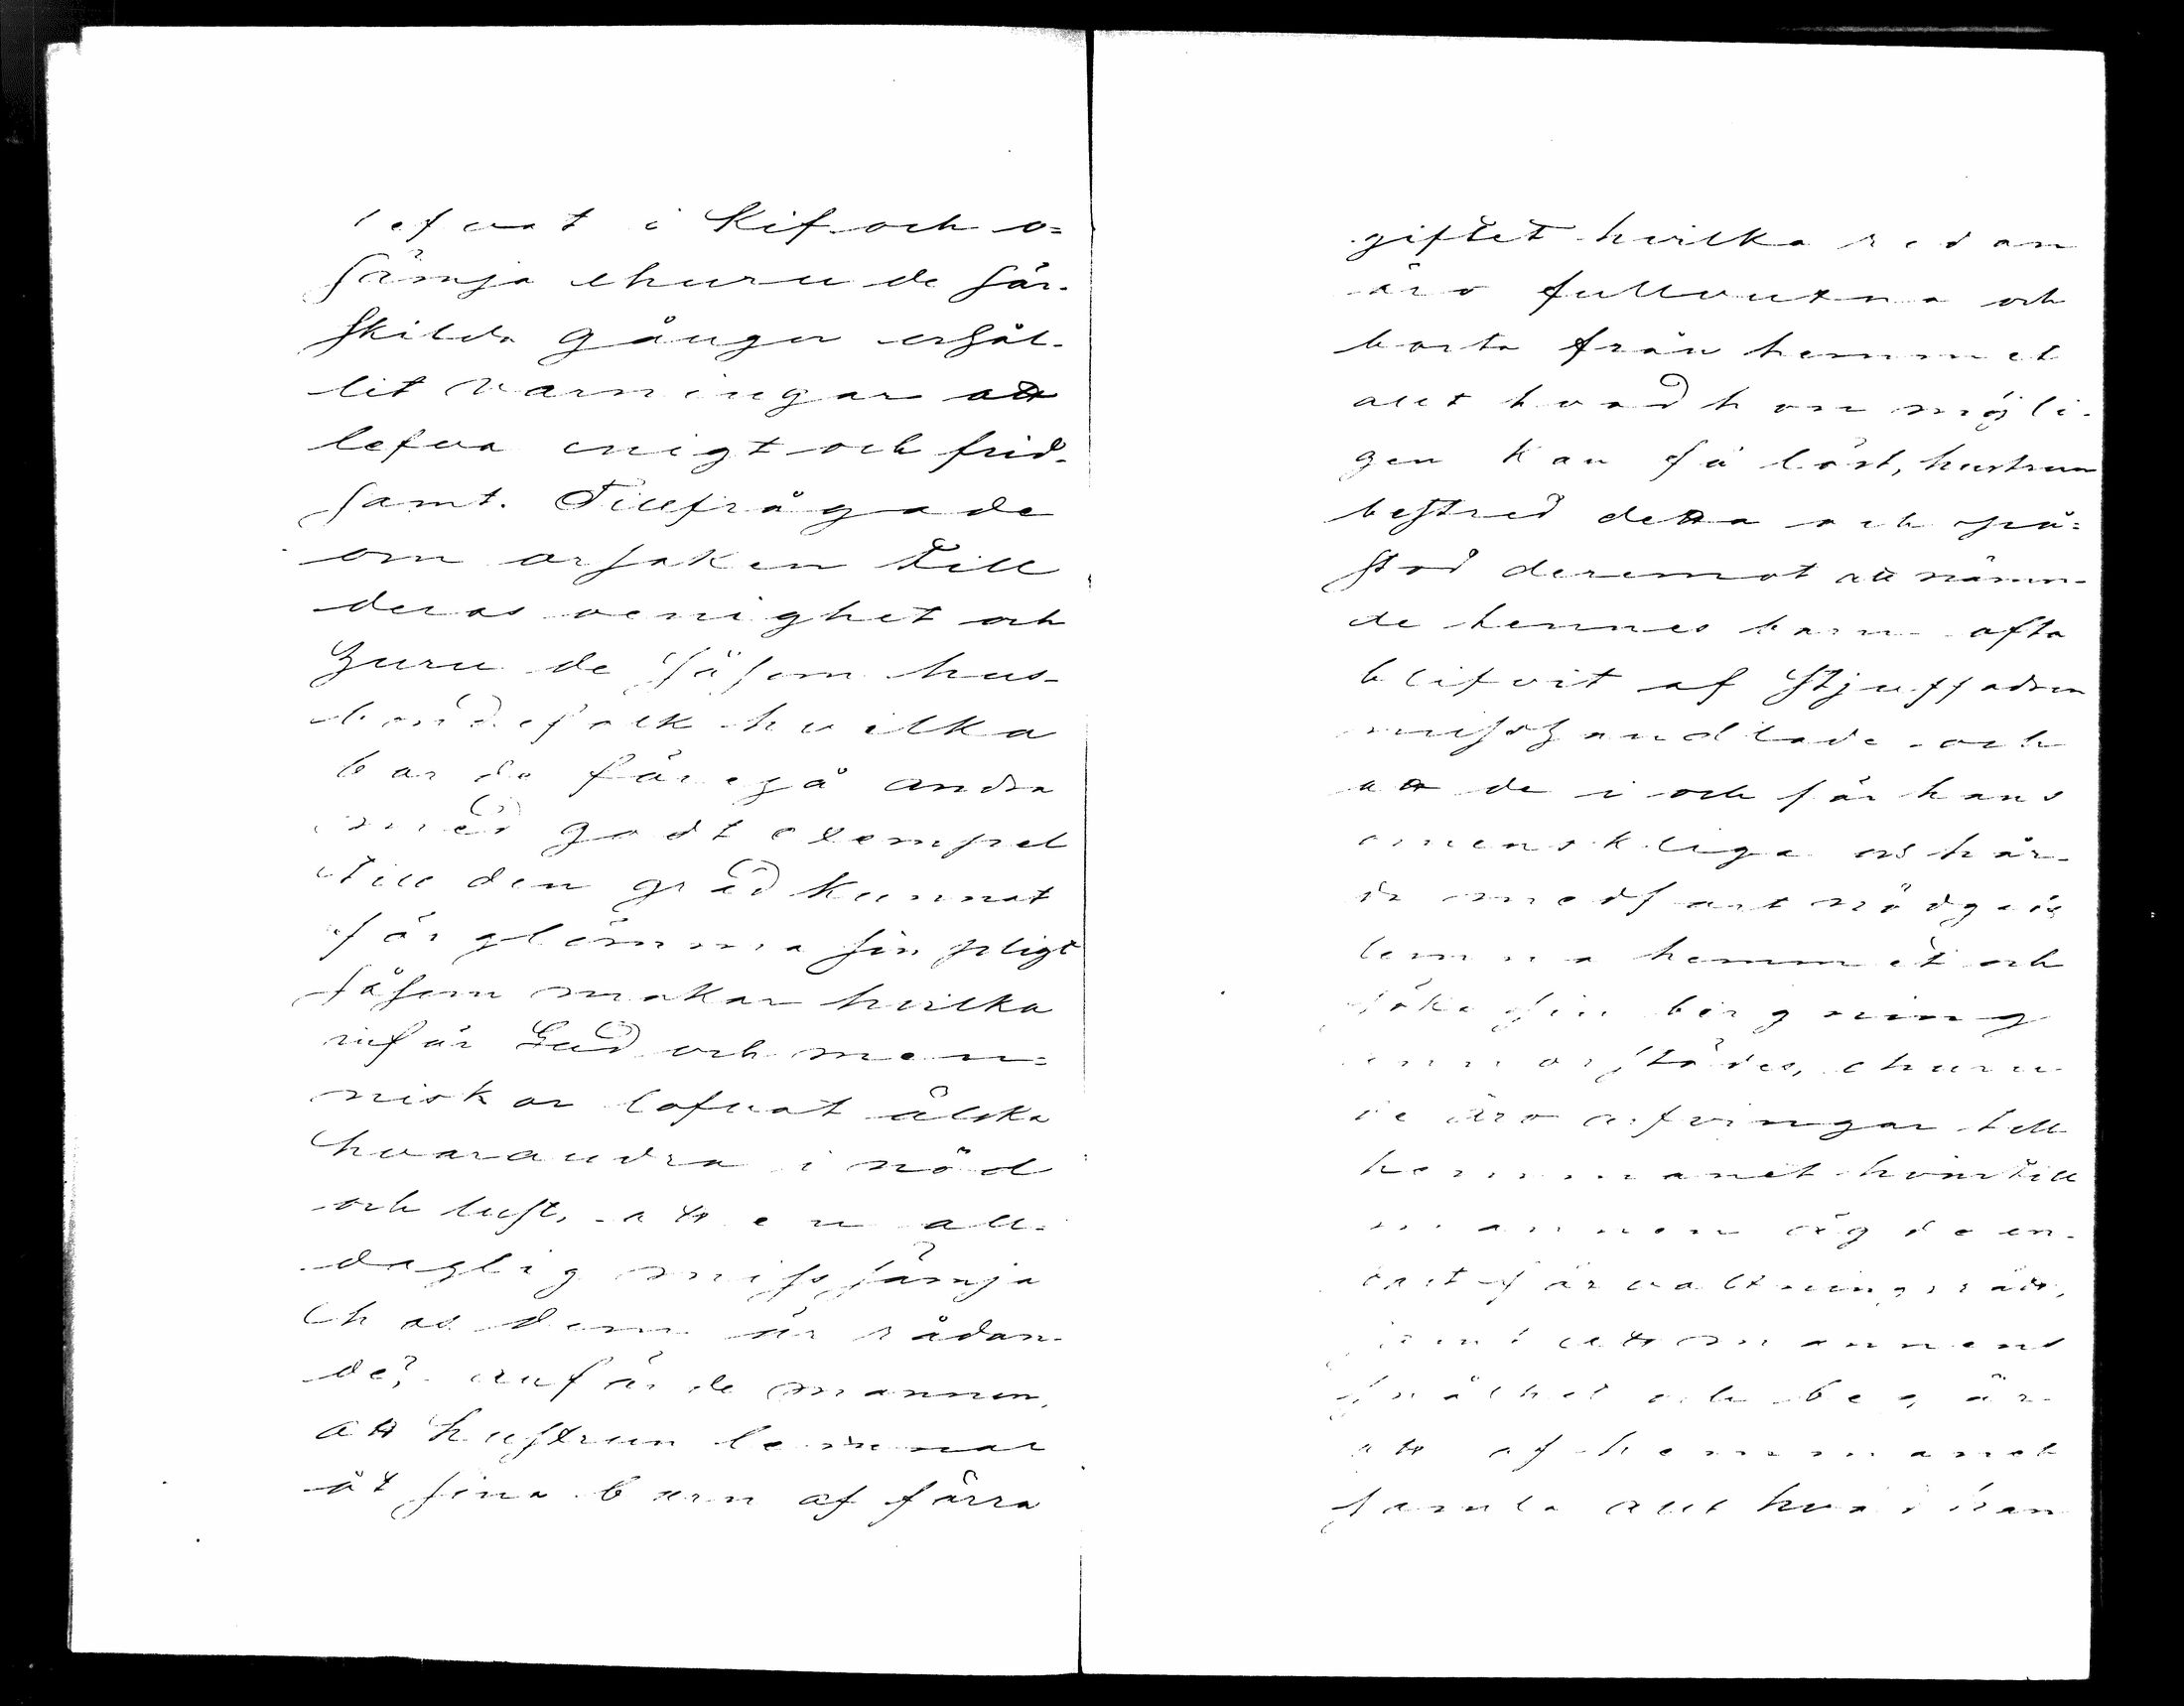 lefvat i Kif och o=
sämja ehuru de sär-
skilda gånger erhål-
lit varningar att
lefva enigt och frid-
samt. Tillfrågade
om orsaken till
deras oenighet och
huru de såsom hus-
bondefolk hvilka
borde föregå andra
med godt exempel
till den grad kunnat
förglömma sin pligt
såsom makar hvilka
inför Gud och men=
niskor lofvat älska
hvarandra i nöd
och lust, att en all-
daglig missämja
hos dem är rådan-
de? anförde mannen,
att hustrun lemnar
åt sina barn af förra
giftet hvilka redan
äro fullvuxna och
borta från hemmet
allt hvad hon möjli-
gen kan få löst, hustrun
bestred detta och på=
stod deremot att nämn-
de hennes barn ofta
blifvit af Stjuffadren
misshandlade och
att de i och för hans
omenskliga och hår-
da medfart nödgats
lemna hemmet och
söka sin bergning
annorstädes, ehuru
de äro arfvingar till
hemmanet hvartill
mannen ägde en-
dast förvaltningsrätt,
samt att mannens
snålhet och begär
att af hemmanet
samla allt hvad han